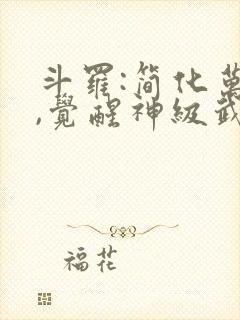 斗羅:简化萬
,覺醒神級武
福花